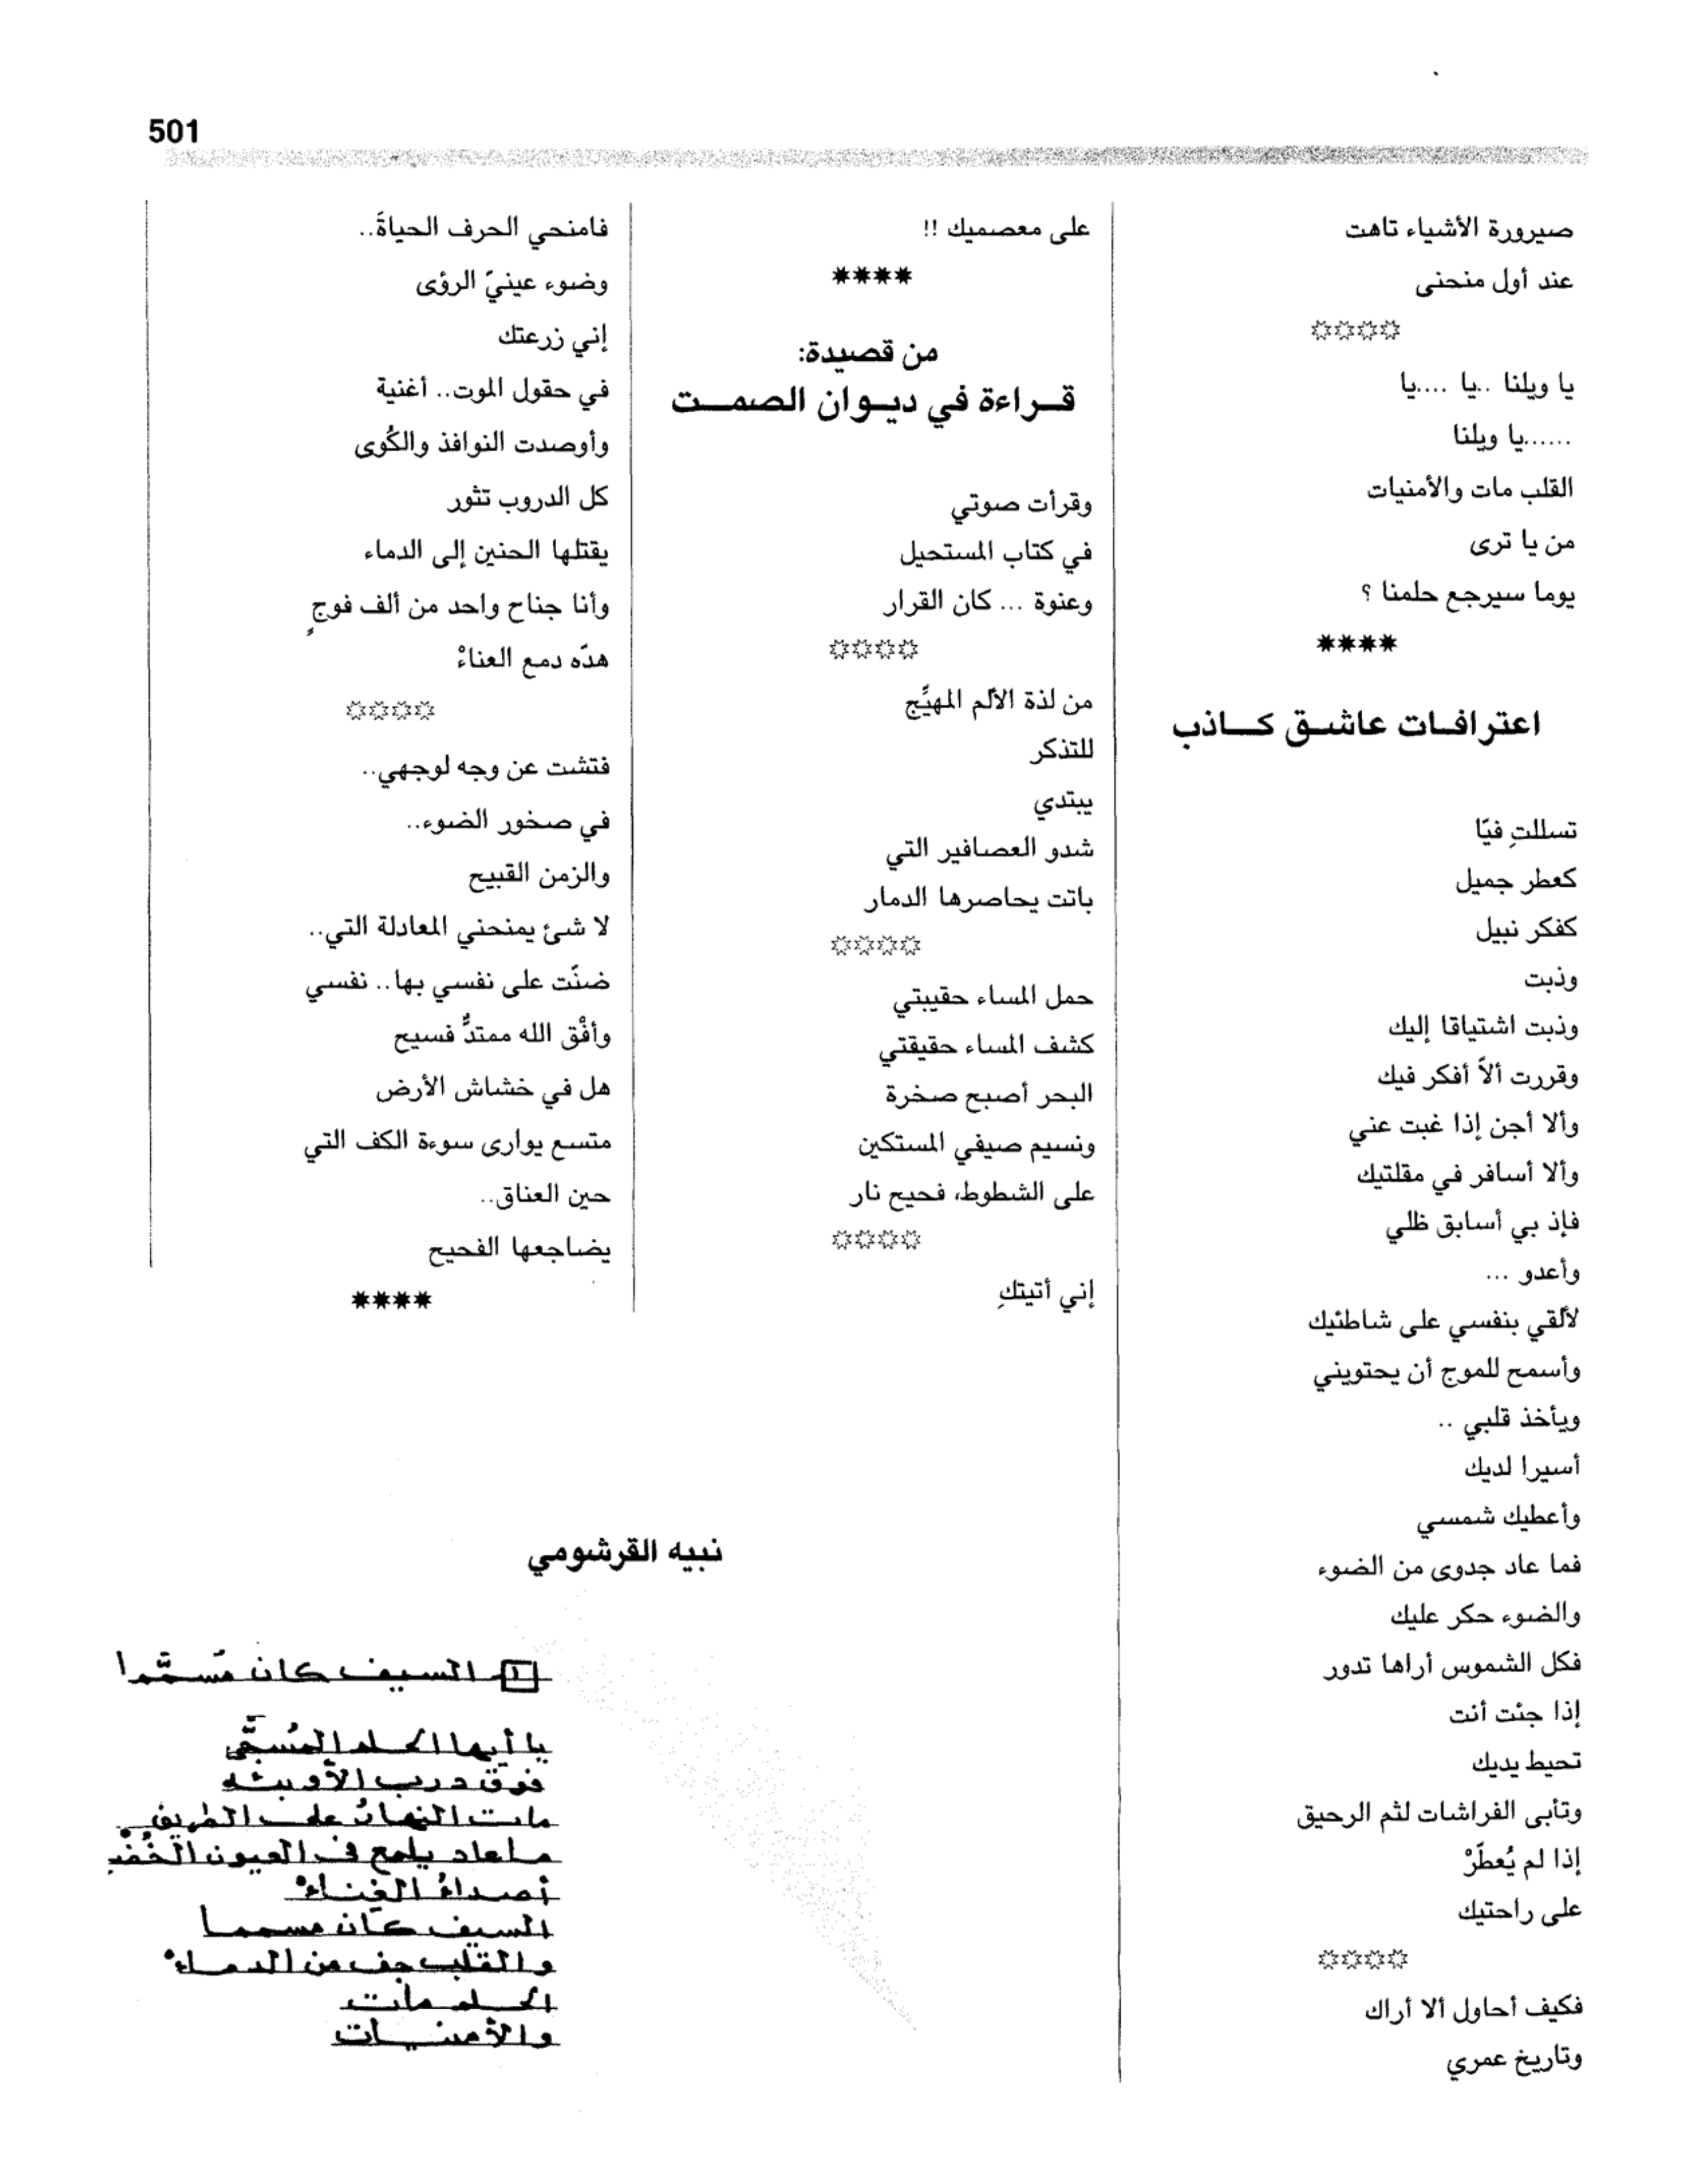 501
صيرورة الأشياء تاهت
عند أول منحنى
☼☼☼☼
يا ويلنا ..يا ....يا
......يا ويلنا
القلب مات والأمنيات
من يا ترى
يوما سيرجع حلمنا ؟
****
اعترافات عاشق كاذب
تسللتِ فيّا
كعطر جميل
كفكر نبيل
وذبت
وذبت اشتياقا إليك
وقررت ألاّ أفكر فيك
وألا أجن إذا غبت عني
وألا أسافر في مقلتيك
فإذ بي أسابق ظلي
وأعدو ...
لألقي بنفسي على شاطئيك
وأسمح للموج أن يحتويني
ويأخذ قلبي ..
أسيرا لديك
وأعطيك شمسي
فما عاد جدوى من الضوء
والضوء حكر عليك
فكل الشموس أراها تدور
إذا جئت أنت
تحيط يديك
وتأبى الفراشات لثم الرحيق
إذا لم يُعطّرْ
على راحتيك
☼☼☼☼
فكيف أحاول ألا أراك
وتاريخ عمري
على معصميك !!
****
من قصيدة:
قراءة في ديوان الصمت
وقرأت صوتي
في كتاب المستحيل
وعنوة ... كان القرار
☼☼☼☼
من لذة الألم المهيِّج
للتذكر
يبتدي
شدو العصافير التي
باتت يحاصرها الدمار
☼☼☼☼
حمل المساء حقيبتي
كشف المساء حقيقتي
البحر أصبح صخرة
ونسيم صيفي المستكين
على الشطوط، فحيح نار
☼☼☼☼
إني أتيتكِ
فامنحي الحرف الحياةَ..
وضوء عينيّ الرؤى
إني زرعتك
في حقول الموت.. أغنية
وأوصدت النوافذ والكُوى
كل الدروب تثور
يقتلها الحنين إلى الدماء
وأنا جناح واحد من ألف فوجٍ
هدّه دمع العناءْ
☼☼☼☼
فتشت عن وجه لوجهي..
في صخور الضوء..
والزمن القبيح
لا شئ يمنحني المعادلة التي..
ضنّت على نفسي بها.. نفسي
وأفْق الله ممتدٌّ فسيح
هل في خشاش الأرض
متسع يوارى سوءة الكف التي
حين العناق..
يضاجعها الفحيح
****
نبيه القرشومي
١- السيف كان مُسمَّما
يا أيها الحلم المُسجَّى
فوق درب الأوبئه
مات النهارُ على الطريق
ما عاد يلمح في العيون الخُضْرِ
أصداءُ الغناءْ
السيف كان مسمما
والقلب جف من الدماءْ
الحلم مات
والأمنيات